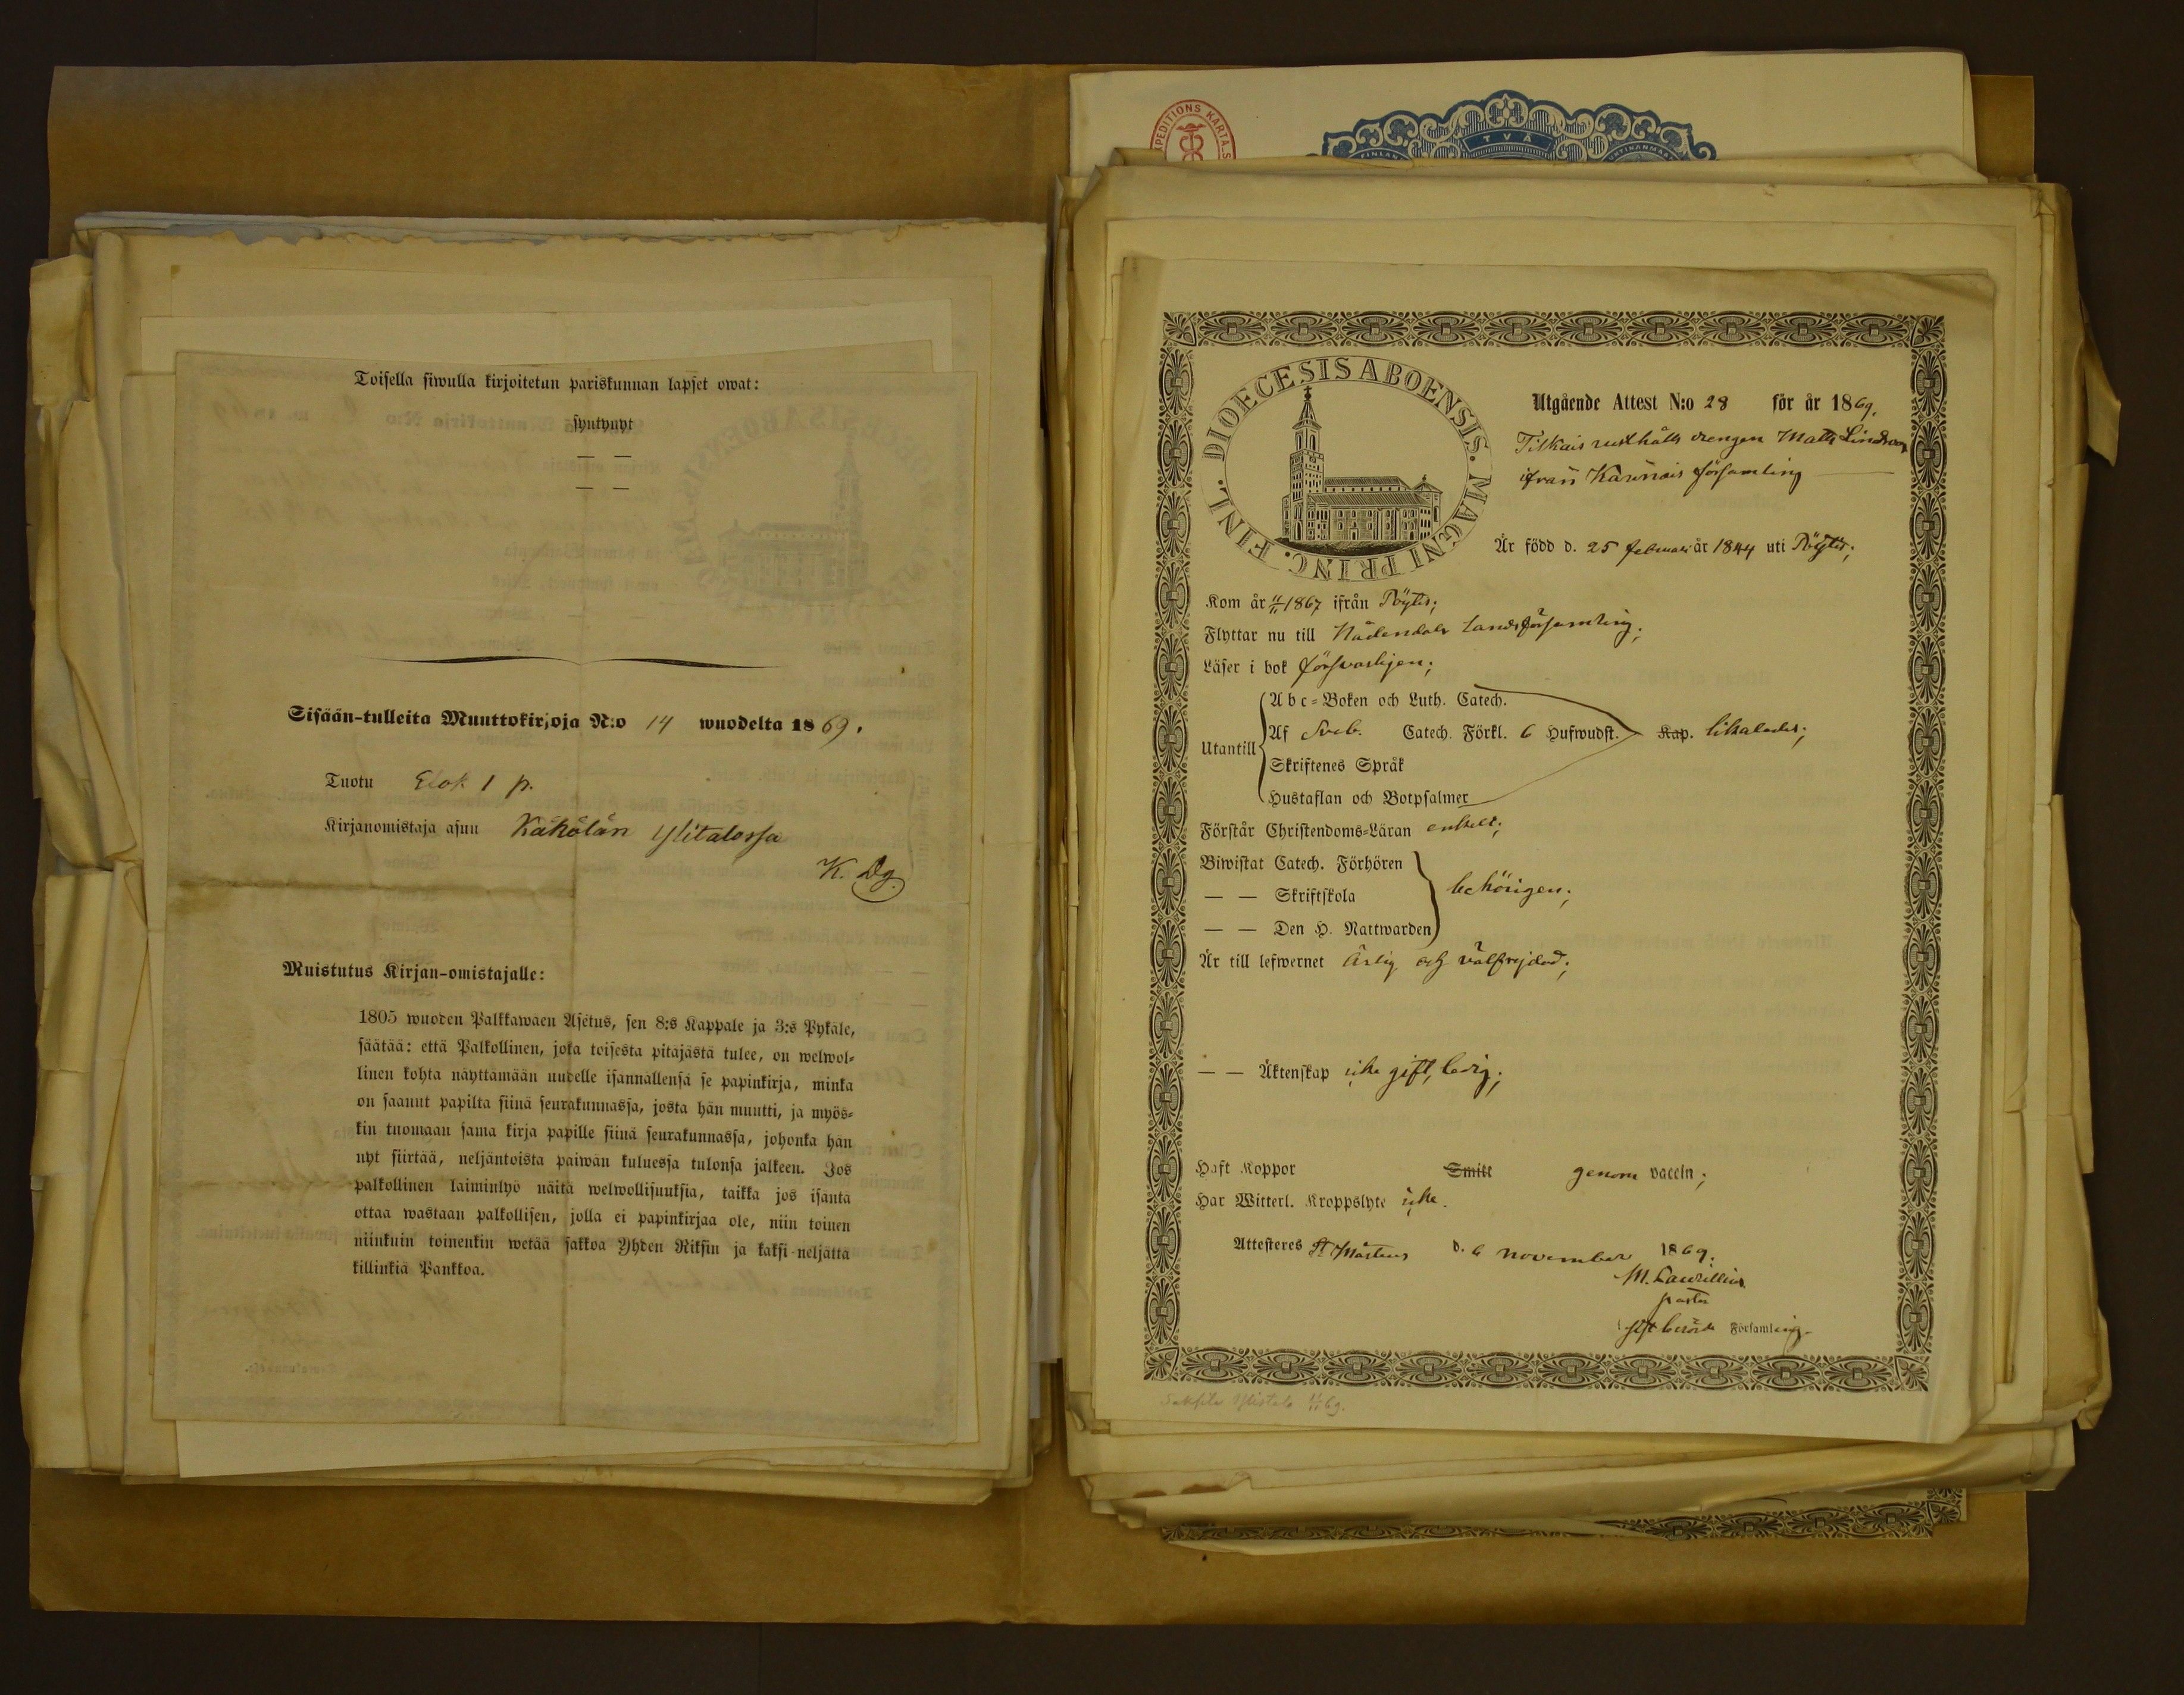 Toisella siwulla kirjoitetun pariskunnan lapset owat:
syntynyt
— —
— —
Sisään-tulleita Muuttokirjoja N:o 14 wuodelta 1869.
Tuotu Elok. 1 p.
Kirjanomistaja asuu Kähölän Ylitalossa
K. Dg.
Muistutus Kirjan-omistajalle:
1805 wuoden Palkkawäen Asetus, sen 8:s Kappale ja 3:s Pykäle,
säätää: että Palkollinen, joka toisesta pitäjästä tulee, on welwol-
linen kohta näyttämään uudelle isännällensä se papinkirja, minkä
on saanut papilta siinä seurakunnassa, josta hän muutti, ja myös-
kin tuomaan sama kirja papille siinä seurakunnassa, johonka hän
nyt siirtää, neljäntoista päiwän kuluessa tulonsa jälkeen. Jos
palkollinen laiminlyö näitä welwollisuuksia, taikka jos isäntä
ottaa wastaan palkollisen, jolla ei papinkirjaa ole, niin toinen
niinkuin toinenkin wetää sakkoa Yhden Riksin ja kaksi neljättä
killinkiä Pankkoa.
EXPEDITIONS KARTA.S
TVÅ
FINLAN
DIOECESIS ABOENSIS. MAGNI PRINC. FINL.
Utgående Attest N:o 28 för år 1869.
Tilkais rusthålls drengen Matts Lindroos
ifrån Karinais församling
Är född d. 25 februari år 1844 uti Pöytis;
Kom år 11/11 1867 ifrån Pöytis;
Flyttar nu till Nådendals Landsförsamling;
Läser i bok försvarligen;
Utantill
Abc-Boken och Luth. Catech.
Af Sveb. Catech. Förkl. 6 Hufwudst. Kap. likaledes;
Skriftenes Språk
Hustaflan och Botpsalmer
Förstår Christendoms-Läran enkelt;
Biwistat Catech. Förhören
— — Skriftskola behörigen;
— — Den H. Nattwarden
Är till lefwernet ärlig och välfrejdad;
— — Äktenskap icke gift, ledig;
Haft Koppor Smitt genom vaccin;
Har Witterl. Kroppslyte icke.
Attesteres St Mårtens d. 6 november 1869.
M. Laurillius
pastor
sist berörde Församling.
Ylistalo 11/11 69.